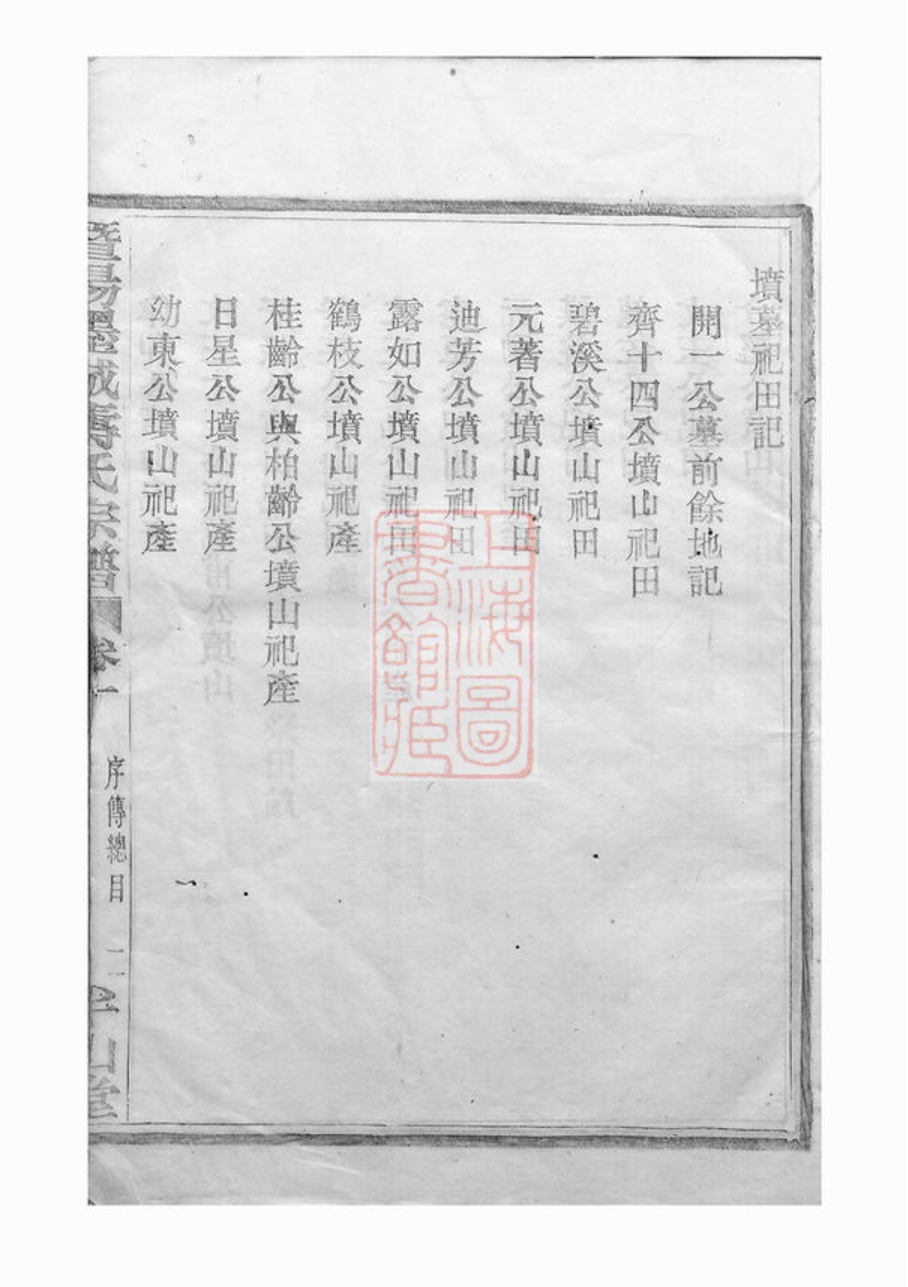 墳墓祀田記
開一公墓前餘地記
齊十四公墳山祀田
碧溪公墳山祀田
元著公墳山祀田
迪芳公墳山祀田
露如公墳山祀田
鶴枝公墳山祀產
桂齡公與柏齡公墳山祀產
日星公墳山祀產
幼東公墳山祀產
暨陽墨城壽氏宗譜 卷一 序傳總目 二 山堂
上海圖書館藏